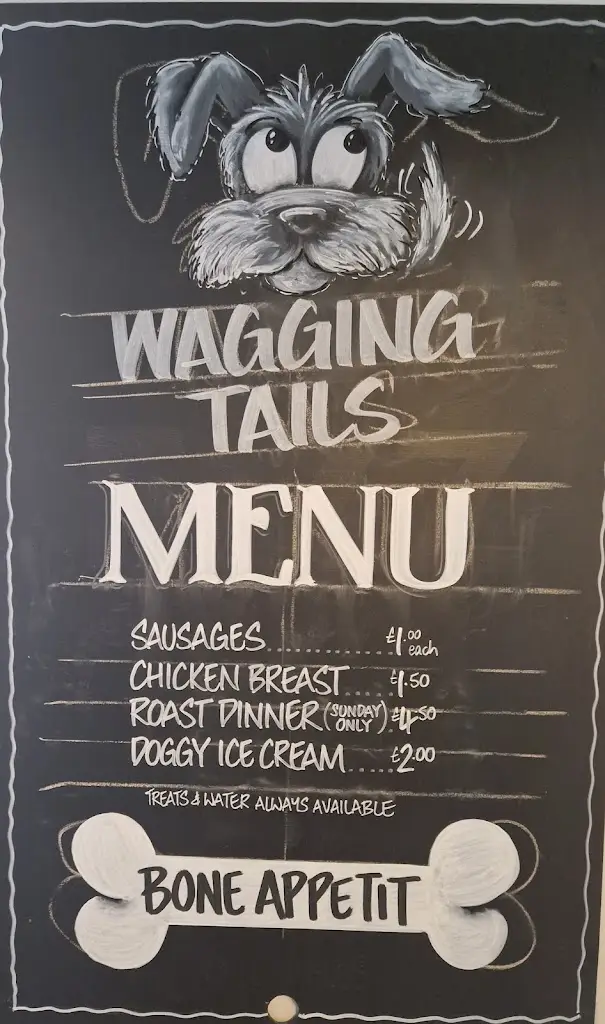 WAGGING
TAILS
MENU
SAUSAGES............£1.00 each
CHICKEN BREAST....£1.50
ROAST DINNER (SUNDAY ONLY) £4.50
DOGGY ICE CREAM.....£2.00
TREATS & WATER ALWAYS AVAILABLE
BONE APPETIT